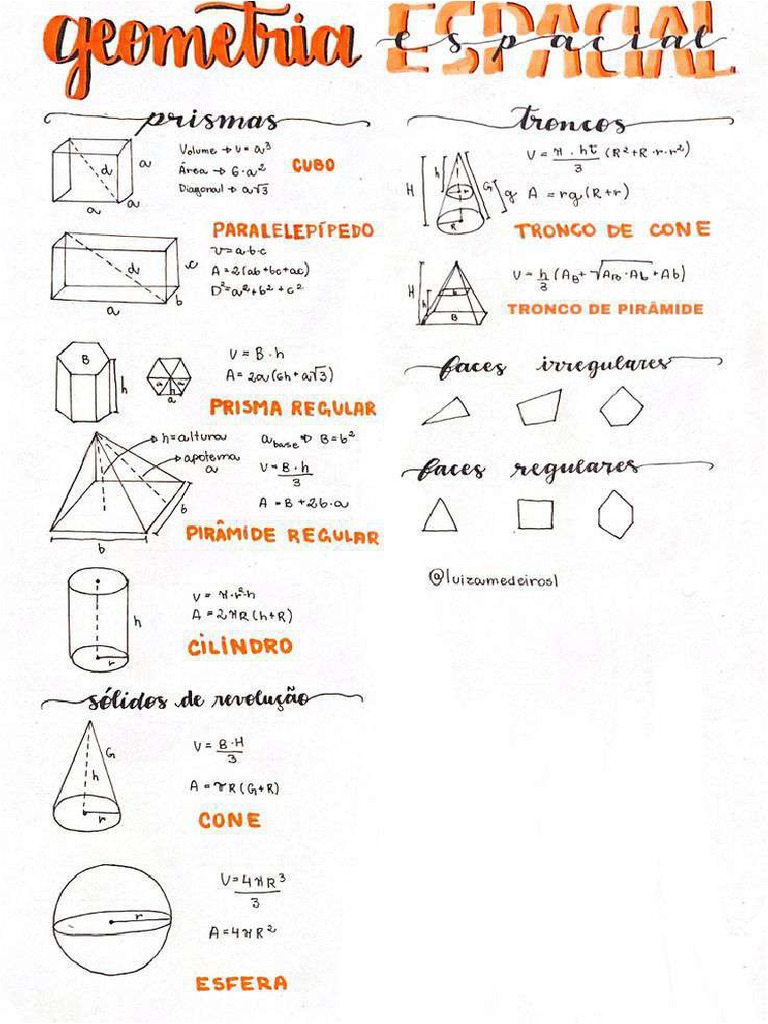 geometria ESPACIAL
espacial
prismas
a
d
a
a
Volume → V = a³
Área → 6·a²
Diagonal → a√3
CUBO
PARALELEPÍPEDO
d
c
b
a
V = a·b·c
A = 2(ab+bc+ac)
D² = a² + b² + c²
B
h
a
V = B·h
A = 2a(6h + a√3)
PRISMA REGULAR
h = altura
apotema
a
b
b
a base → B = b²
V = B·h/3
A = B + 2b·a
PIRÂMIDE REGULAR
h
r
V = π·r²·h
A = 2πR(h+R)
CILINDRO
sólidos de revolução
G
h
r
V = B·H/3
A = πR(G+R)
CONE
r
V = 4πR³/3
A = 4πR²
ESFERA
troncos
H
h
r
G
g
R
V = π·ht/3 (R²+R·r·r²)
A = rg(R+r)
TRONCO DE CONE
H
h
b
B
V = h/3 (AB + √AB·Ab + Ab)
TRONCO DE PIRÂMIDE
faces irregulares
faces regulares
@luizamedeiros1